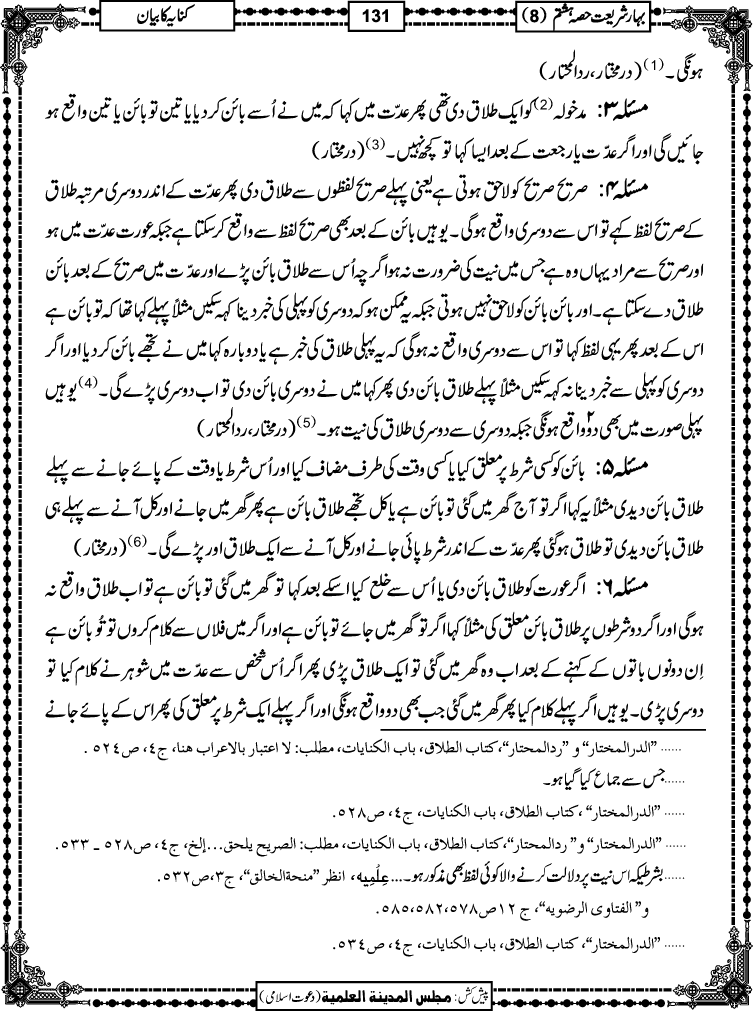 بہار شریعت حصہ ہشتم (8)
131
کنایہ کا بیان
ہونگی۔(1) (درمختار، ردالمحتار)
مسئلہ ۳: مدخولہ(2)کو ایک طلاق دی تھی پھر عدّت میں کہا کہ میں نے اُسے بائن کردیا یا تین تو بائن یا تین واقع ہو
جائیں گی اور اگر عدّت یا رجعت کے بعد ایسا کہا تو کچھ نہیں۔(3) (درمختار)
مسئلہ ۴: صریح صریح کو لاحق ہوتی ہے یعنی پہلے صریح لفظوں سے طلاق دی پھر عدّت کے اندر دوسری مرتبہ طلاق
کے صریح لفظ کہے تو اس سے دوسری واقع ہوگی۔ یوہیں بائن کے بعد بھی صریح لفظ سے واقع کرسکتا ہے جبکہ عورت عدّت میں ہو
اور صریح سے مراد یہاں وہ ہے جس میں نیت کی ضرورت نہ ہو اگرچہ اُس سے طلاق بائن پڑے اور عدّت میں صریح کے بعد بائن
طلاق دے سکتا ہے۔ اور بائن بائن کو لاحق نہیں ہوتی جبکہ یہ ممکن ہو کہ دوسری کو پہلی کی خبر دینا کہہ سکیں مثلاً پہلے کہا تھا کہ تو بائن ہے
اس کے بعد پھر یہی لفظ کہا تو اس سے دوسری واقع نہ ہوگی کہ یہ پہلی طلاق کی خبر ہے یا دوبارہ کہا میں نے تجھے بائن کردیا اور اگر
دوسری کو پہلی سے خبر دینا نہ کہہ سکیں مثلاً پہلے طلاق بائن دی پھر کہا میں نے دوسری بائن دی تو اب دوسری پڑے گی۔(4) یوہیں
پہلی صورت میں بھی دو۲ واقع ہونگی جبکہ دوسری سے دوسری طلاق کی نیت ہو۔(5) (درمختار، ردالمحتار)
مسئلہ ۵: بائن کو کسی شرط پر معلق کیا یا کسی وقت کی طرف مضاف کیا اور اُس شرط یا وقت کے پائے جانے سے پہلے
طلاق بائن دیدی مثلاً یہ کہا اگر تو آج گھر میں گئی تو بائن ہے یا کل تجھے طلاق بائن ہے پھر گھر میں جانے اور کل آنے سے پہلے ہی
طلاق بائن دیدی تو طلاق ہوگئی پھر عدّت کے اندر شرط پائی جانے اور کل آنے سے ایک طلاق اور پڑے گی۔(6) (درمختار)
مسئلہ ۶: اگر عورت کو طلاق بائن دی یا اُس سے خلع کیا اسکے بعد کہا تو گھر میں گئی تو بائن ہے تو اب طلاق واقع نہ
ہوگی اور اگر دو شرطوں پر طلاق بائن معلق کی مثلاً کہا اگر تو گھر میں جائے تو بائن ہے اور اگر میں فلاں سے کلام کروں تو تُو بائن ہے
اِن دونوں باتوں کے کہنے کے بعد اب وہ گھر میں گئی تو ایک طلاق پڑی پھر اگر اُس شخص سے عدّت میں شوہر نے کلام کیا تو
دوسری پڑی۔ یوہیں اگر پہلے کلام کیا پھر گھر میں گئی جب بھی دو واقع ہونگی اور اگر پہلے ایک شرط پر معلق کی پھر اس کے پائے جانے
...... ”الدرالمختار“ و ”ردالمحتار“،کتاب الطلاق، باب الکنایات، مطلب: لا اعتبار بالاعراب هنا، ج٤، ص٥٢٤ .
......جس سے جماع کیا گیا ہو۔
...... ”الدرالمختار“ ،کتاب الطلاق، باب الکنایات، ج٤، ص٥٢٨.
...... ”الدرالمختار“ و” ردالمحتار“،کتاب الطلاق، باب الکنایات، مطلب: الصریح یلحق...إلخ، ج٤، ص٥٢٨ ـ ٥٣٣.
......بشرطیکہ اس نیت پر دلالت کرنے والا کوئی لفظ بھی مذکور ہو۔...عِلْمِیه، انظر ”منحةالخالق“، ج٣،ص٥٣٢.
و” الفتاوی الرضویه“، ج ١٢ص٥٧٨،٥٨٢،٥٨٥.
...... ”الدرالمختار“، کتاب الطلاق، باب الکنایات، ج٤، ص٥٣٤.
پیش کش: مجلس المدینة العلمیة (دعوت اسلامی)